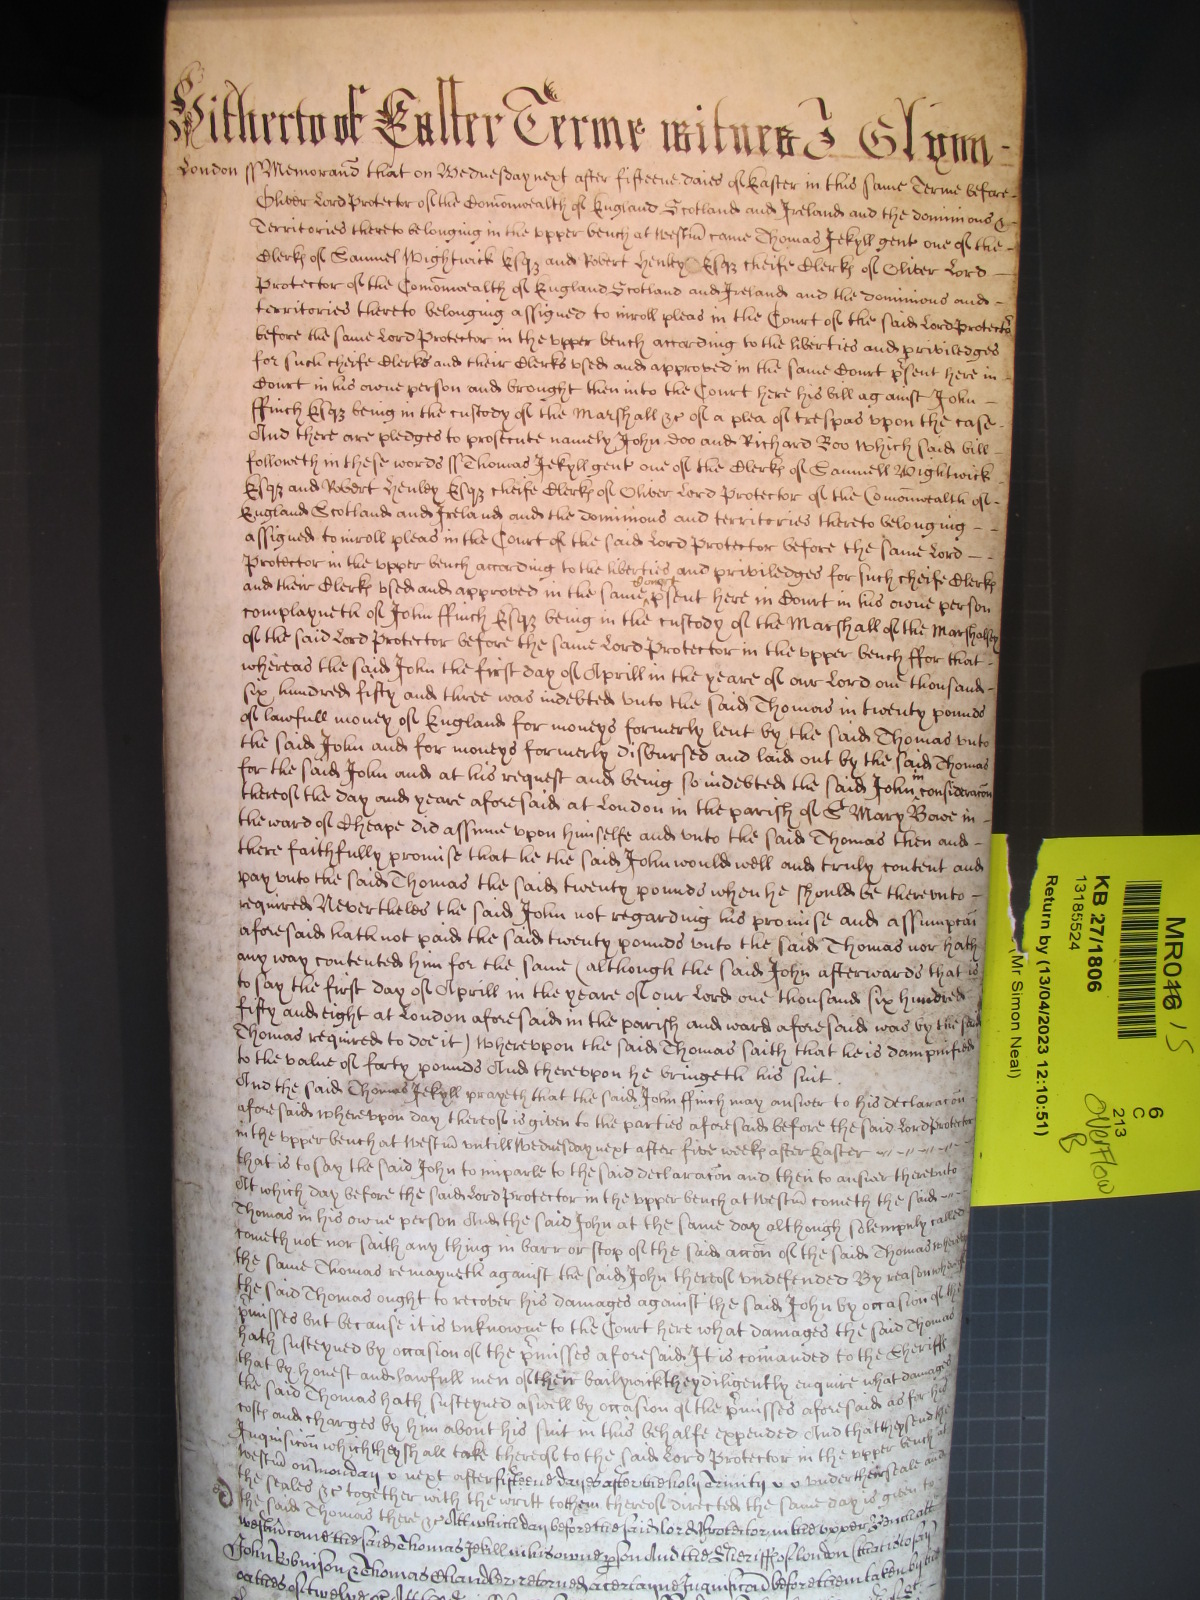 Hitherto of Easter Terme witnes J Glynn
London ss Memorand that on Wednesday next after fifteene daies of Easter in this same Terme before
Oliver Lord Protector of the Comonwealth of England Scotland and Ireland and the dominions &
Territories thereto belonging in the upper bench at Westm came Thomas Jekyll gent one of the
Clerks of Samuel Wightwick Esqz and Robert Henley Esqz cheife Clerks of Oliver Lord
Protector of the Comonwealth of England Scotland and Ireland and the dominions and
territories thereto belonging assigned to inroll pleas in the Court of the said Lord Protector
before the same Lord Protector in the upper bench according to the liberties and priviledges
for such cheife Clerks and their Clerks used and approved in the same Court psent here in
Court in his owne person and brought then into the Court here his bill against John
ffinch Esqz being in the custody of the Marshall &c of a plea of trespas upon the case
And there are pledges to prosecute namely John Doo and Richard Roo Which said bill
followeth in these words ss Thomas Jekyll gent one of the Clerks of Samuell Wightwick
Esqz and Robert Henley Esqz cheife Clerks of Oliver Lord Protector of the Comonwealth of
England Scotland and Ireland and the dominions and territories thereto belonging
assigned to inroll pleas in the Court of the said Lord Protector before the same Lord
Protector in the upper bench according to the liberties and priviledges for such cheife Clerks
and their Clerks used and approved in the same Court psent here in Court in his owne person
complayneth of John ffinch Esqz being in the custody of the Marshall of the Marshalsey
of the said Lord Protector before the same Lord Protector in the upper bench ffor that
whereas the said John the first day of Aprill in the yeare of our Lord one thousand
six hundred fifty and three was indebted unto the said Thomas in twenty pounds
of lawfull money of England for moneys formerly lent by the said Thomas unto
the said John and for moneys formerly disbursed and laid out by the said Thomas
for the said John and at his request and being so indebted the said John in consideracon
thereof the day and yeare aforesaid at London in the parish of St Mary Bowe in
the ward of Cheape did assume upon himselfe and unto the said Thomas then and
there faithfully promise that he the said John would well and truly content and
pay unto the said Thomas the said twenty pounds when he should be thereunto
required Nevertheles the said John not regarding his promise and assumpcon
aforesaid hath not paid the said twenty pounds unto the said Thomas nor hath
any way contented him for the same (although the said John afterwards that is
to say the first day of Aprill in the yeare of our Lord one thousand six hundred
fifty and eight at London aforesaid in the parish and ward aforesaid was by the said
Thomas required to doe it) Whereupon the said Thomas saith that he is dampnified
to the value of forty pounds And thereupon he bringeth his suit.
And the said Thomas Jekyll prayeth that the said John ffinch may answer to his declaracon
aforesaid whereupon day thereof is given to the parties aforesaid before the said Lord Protector
in the upper bench at Westm untill Wednesday next after five weeks after Easter
that is to say the said John to imparle to the said declaracon and then to answer thereunto
At which day before the said Lord Protector in the upper bench at Westm cometh the said
Thomas in his owne person And the said John at the same day although solempnly called
cometh not nor saith any thing in barr or stop of the said accon of the said Thomas whereby
the same Thomas remayneth against the said John thereof undefended By reason whereof
the said Thomas ought to recover his damages against the said John by occasion of the
pmisses but because it is unknowne to the Court here what damages the said Thomas
hath susteyned by occasion of the pmisses aforesaid It is comanded to the Sheriffs
that by honest and lawfull men of their bailywick they diligently enquire what damages
the said Thomas hath susteyned aswell by occasion of the pmisses aforesaid as for his
costs and charges by him about his suit in this behalfe expended And that they send the
Inquisicon which they shall take thereof to the said Lord Protector in the upper bench at
Westm on monday next after fifteene dayes after the holy Trinity under their seale and
the seales &c together with the writt to them thereof directed the same day is given to
the said Thomas there &c Att which day before the said Lord Protector in the upper bench att
westm come the said Thomas Jekill in his owne pson And the Sheriffs of London (that is to say)
John Robinson & Thomas Chandler returned a certayne Inquisicon before them taken by the
oathes of twelve
MR016 / 15
KB 27/1806
13185524
Return by (13/04/2023 12:10:51)
(Mr Simon Neal)
6
C
213
Overflow
B